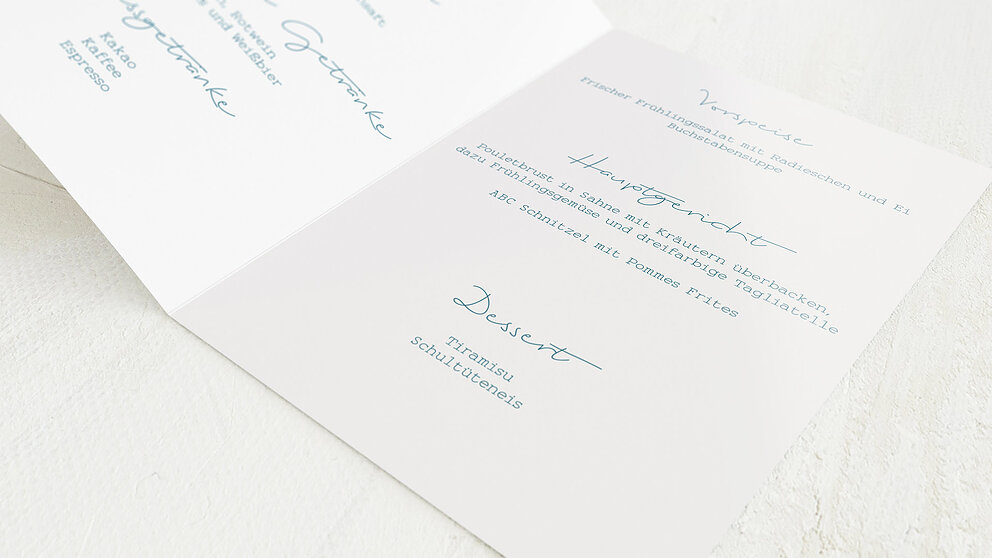 Getränke
Notwein
und Weißbier
Kakao
Kaffee
Espresso
Vorspeise
Frischer Frühlingssalat mit Radieschen und Ei
Buchstabensuppe
Hauptgericht
Pouletbrust in Sahne mit Kräutern überbacken,
dazu Frühlingsgemüse und dreifarbige Tagliatelle
ABC Schnitzel mit Pommes Frites
Dessert
Tiramisu
Schultüteneis